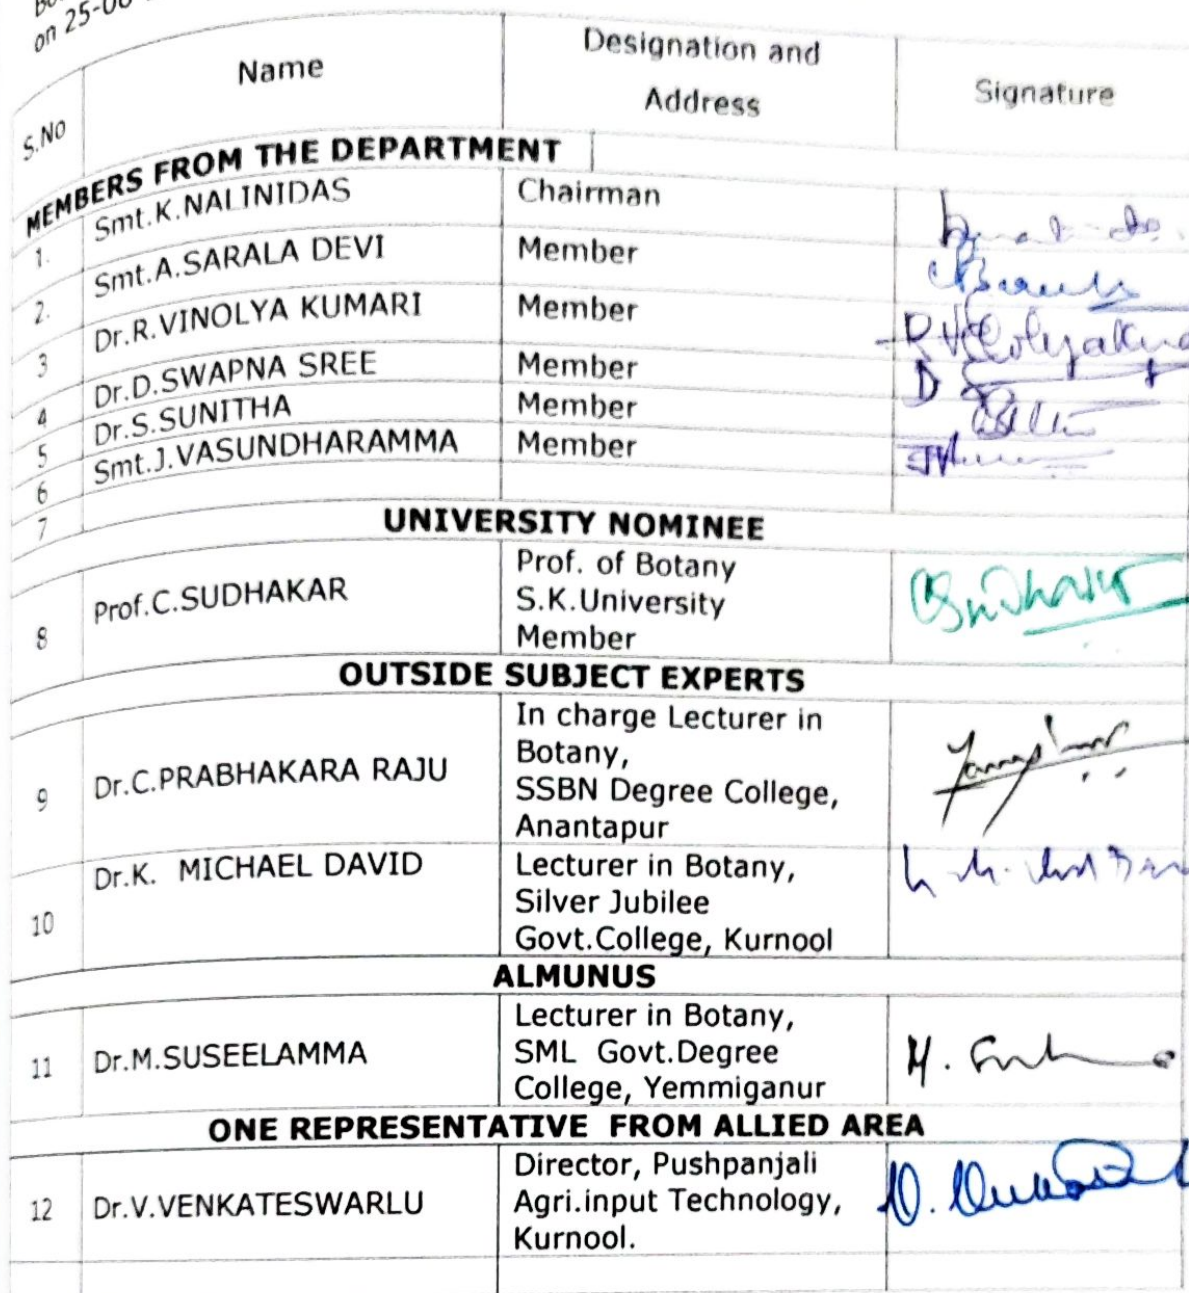 on 25-06
S.No Name Designation and
Address Signature
MEMBERS FROM THE DEPARTMENT
1. Smt.K.NALINIDAS Chairman
2. Smt.A.SARALA DEVI Member
3 Dr.R.VINOLYA KUMARI Member
4 Dr.D.SWAPNA SREE Member
5 Dr.S.SUNITHA Member
6 Smt.J.VASUNDHARAMMA Member
7
UNIVERSITY NOMINEE
8 Prof.C.SUDHAKAR Prof. of Botany
S.K.University
Member
CSudhakar
OUTSIDE SUBJECT EXPERTS
9 Dr.C.PRABHAKARA RAJU In charge Lecturer in
Botany,
SSBN Degree College,
Anantapur
10 Dr.K. MICHAEL DAVID Lecturer in Botany,
Silver Jubilee
Govt.College, Kurnool
ALMUNUS
11 Dr.M.SUSEELAMMA Lecturer in Botany,
SML Govt.Degree
College, Yemmiganur
ONE REPRESENTATIVE FROM ALLIED AREA
12 Dr.V.VENKATESWARLU Director, Pushpanjali
Agri.input Technology,
Kurnool.